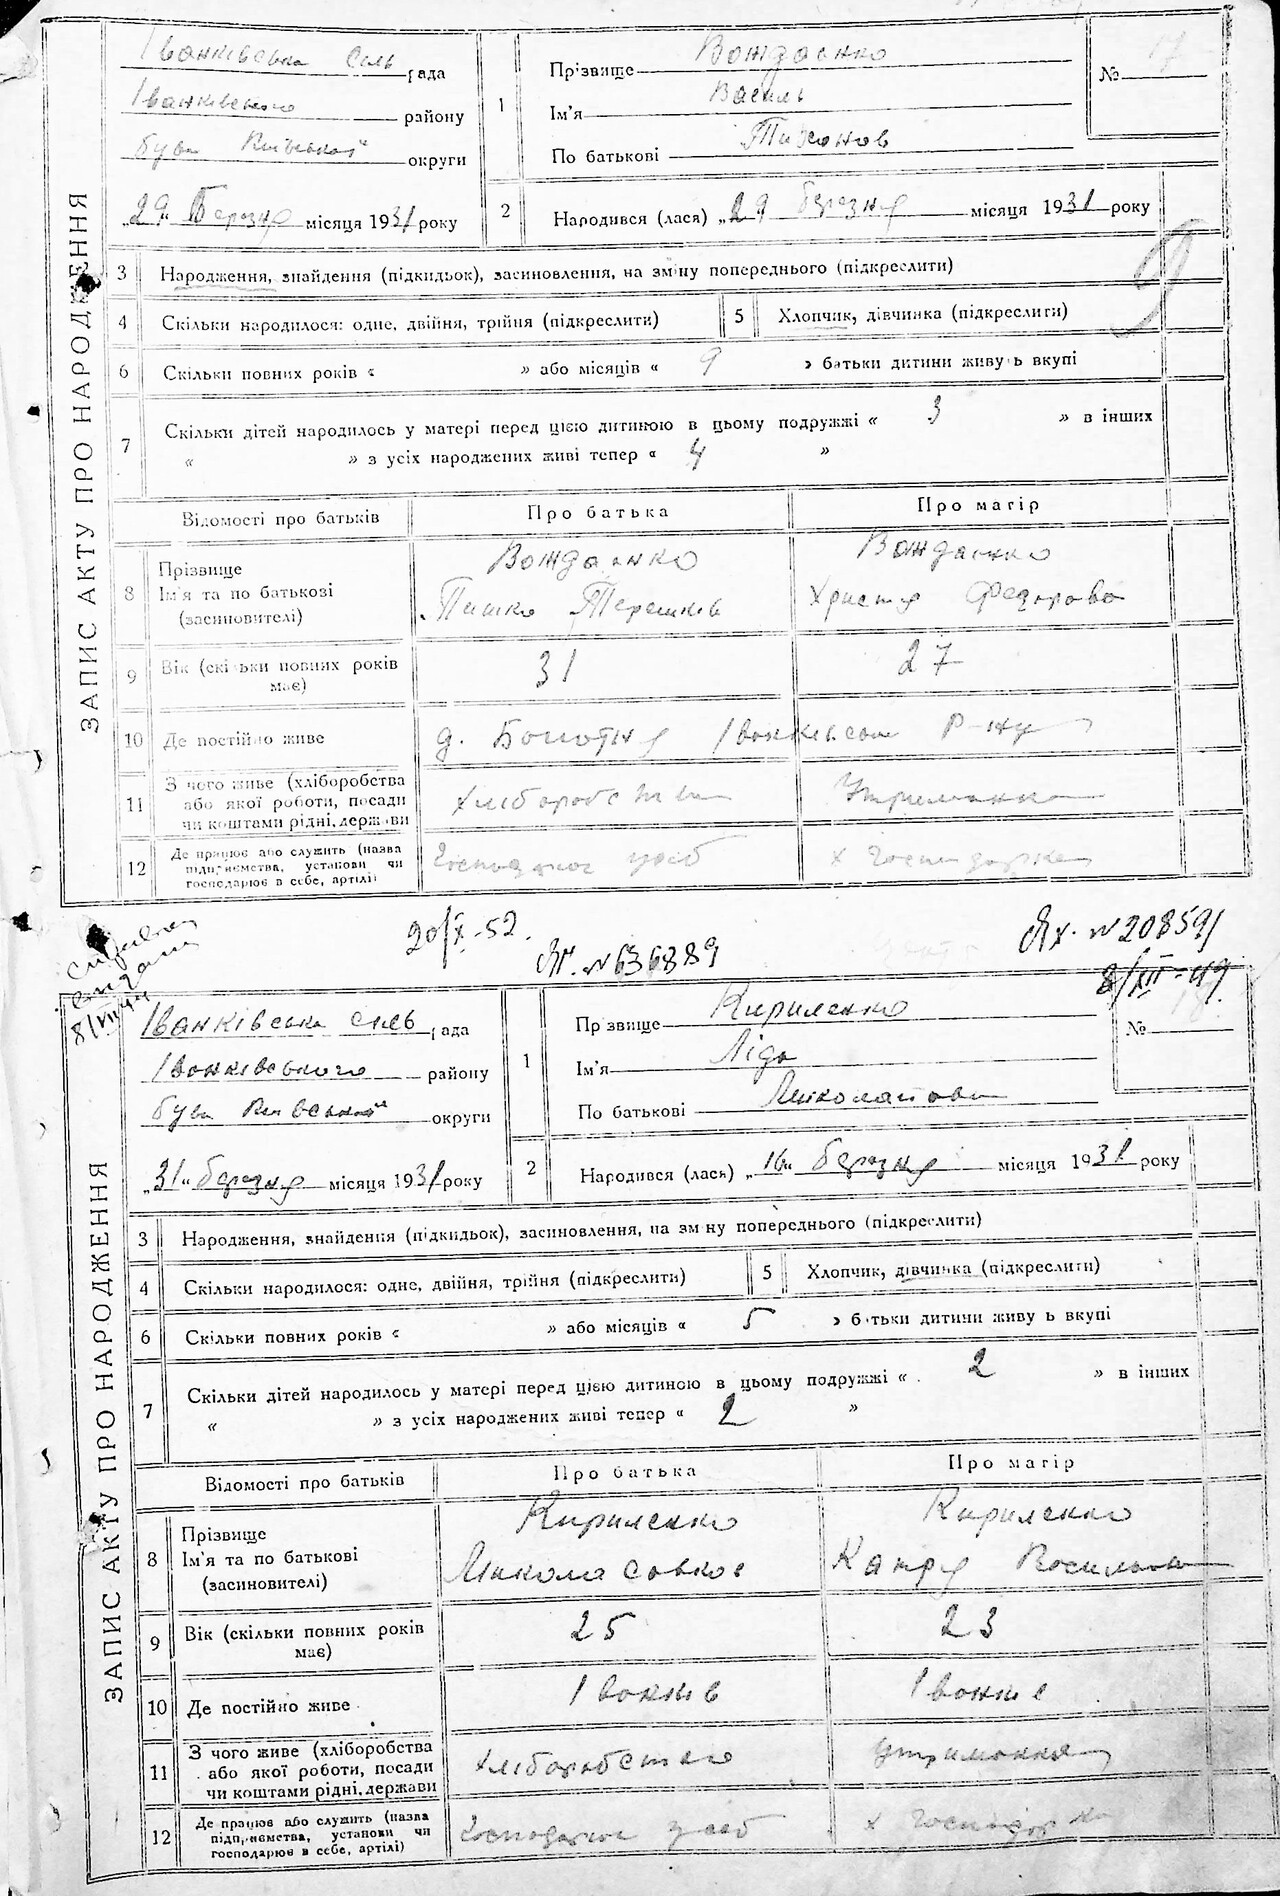 ЗАПИС АКТУ ПРО НАРОДЖЕННЯ
Іванківська Сель рада
Іванківського району
був Київської округи
„29“ Березня місяця 1931 року
1 Прізвище Вождаєнко
Ім'я Василь
По батькові Тихонов
№ 17
2 Народився (лася) „29 березня місяця 1931 року
3 Народження, знайдення (підкидьок), засиновлення, на зміну попереднього (підкреслити)
4 Скільки народилося: одне, двійня, трійня (підкреслити)
5 Хлопчик, дівчинка (підкреслити)
6 Скільки повних років « » або місяців « 9 » батьки дитини живуть вкупі
7 Скільки дітей народилось у матері перед цією дитиною в цьому подружжі « 3 » в інших
« » з усіх народжених живі тепер « 4 »
Відомості про батьків Про батька Про матір
8 Прізвище Ім'я та по батькозі (засиновителі)
Вождаєнко Вождаєнко
Терешків Христя Федорова
9 Вік (скільки повних років має) 31 27
10 Де постійно живе
Іванківськ Р-ну
11 З чого живе (хліборобства або якої роботи, посади чи коштами рідні, держави
хліборобства Утриманка
12 Де працює або служить (назва підприємства, установи чи господарює в себе, артілі)
20/X-52. № 636889
№ 20859/
8/XII-49
8/VII 44
ЗАПИС АКТУ ПРО НАРОДЖЕННЯ
Іванківська сель рада
Іванківського району
був Київської округи
„31“ березня місяця 1931 року
1 Прізвище Кириленко
Ім'я Ліда
По батькові Миколаївна
№ 18
2 Народився (лася) „16“ березня місяця 1931 року
3 Народження, знайдення (підкидьок), засиновлення, на зміну попереднього (підкреслити)
4 Скільки народилося: одне, двійня, трійня (підкреслити)
5 Хлопчик, дівчинка (підкреслити)
6 Скільки повних років « » або місяців « 5 » батьки дитини живуть вкупі
7 Скільки дітей народилось у матері перед цією дитиною в цьому подружжі « 2 » в інших
« » з усіх народжених живі тепер « 2 »
Відомості про батьків Про батька Про матір
8 Прізвище Ім'я та по батькові (засиновителі)
Кириленко Кириленко
Микола Савков Катря
9 Вік (скільки повних років має) 25 23
10 Де постійно живе Іванків Іванків
11 З чого живе (хліборобства або якої роботи, посади чи коштами рідні, держави
хліборобство утримання
12 Де працює або служить (назва підприємства, установи чи господарює в себе, артілі)